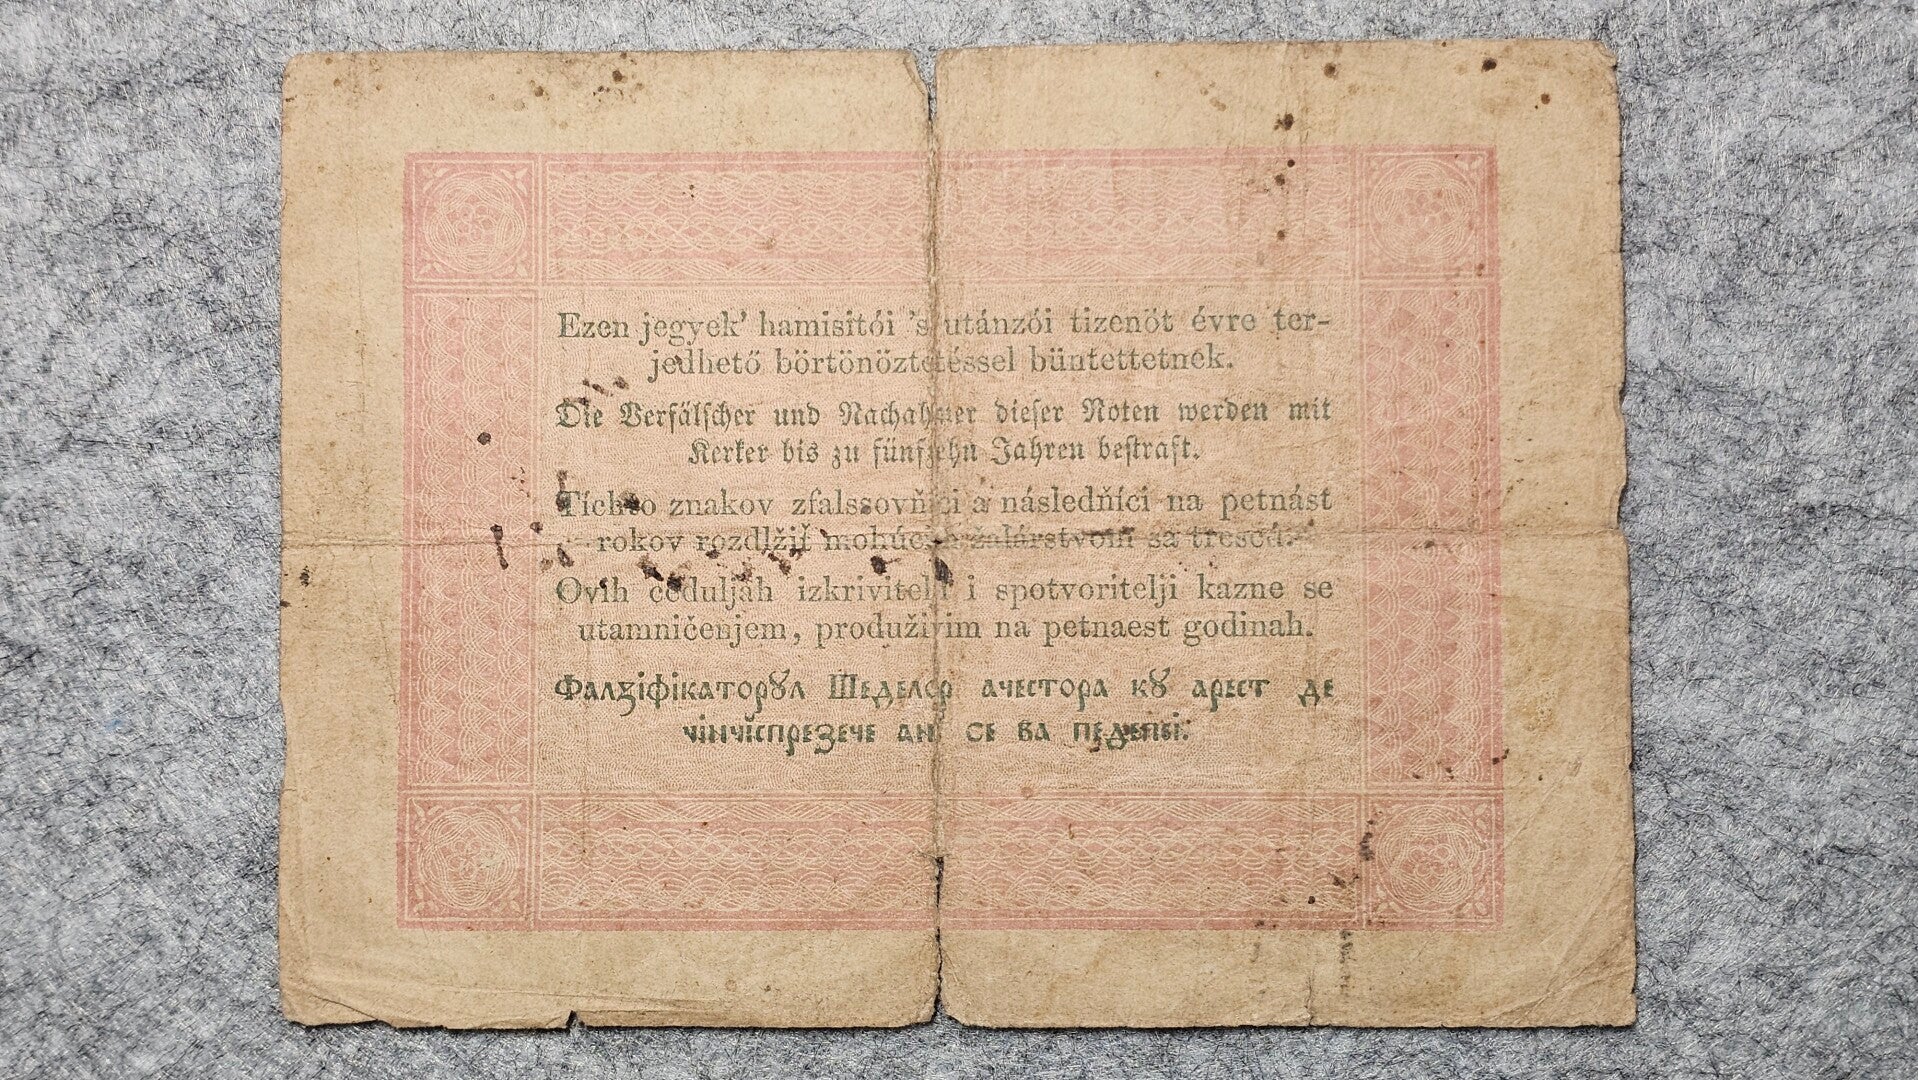 Ezen jegyek’ hamisitói ’s utánzói tizenöt évre ter-
jedhető börtönöztetéssel büntettetnek.
Die Verfälscher und Nachahmer dieser Noten werden mit
Kerker bis zu fünfzehn Jahren bestraft.
Tíchto znakov zfalssovňíci a následňíci na petnást
rokov rozdlžiť mohúcim žalárstvom sa trescú.
Ovih ceduljah izkrivitelji i spotvoritelji kazne se
utamničenjem, produživim na petnaest godinah.
Фалзіфікаторꙋл Шеделор ачестора кꙋ арест де
чінчіспрезече ані се ва педепсі.